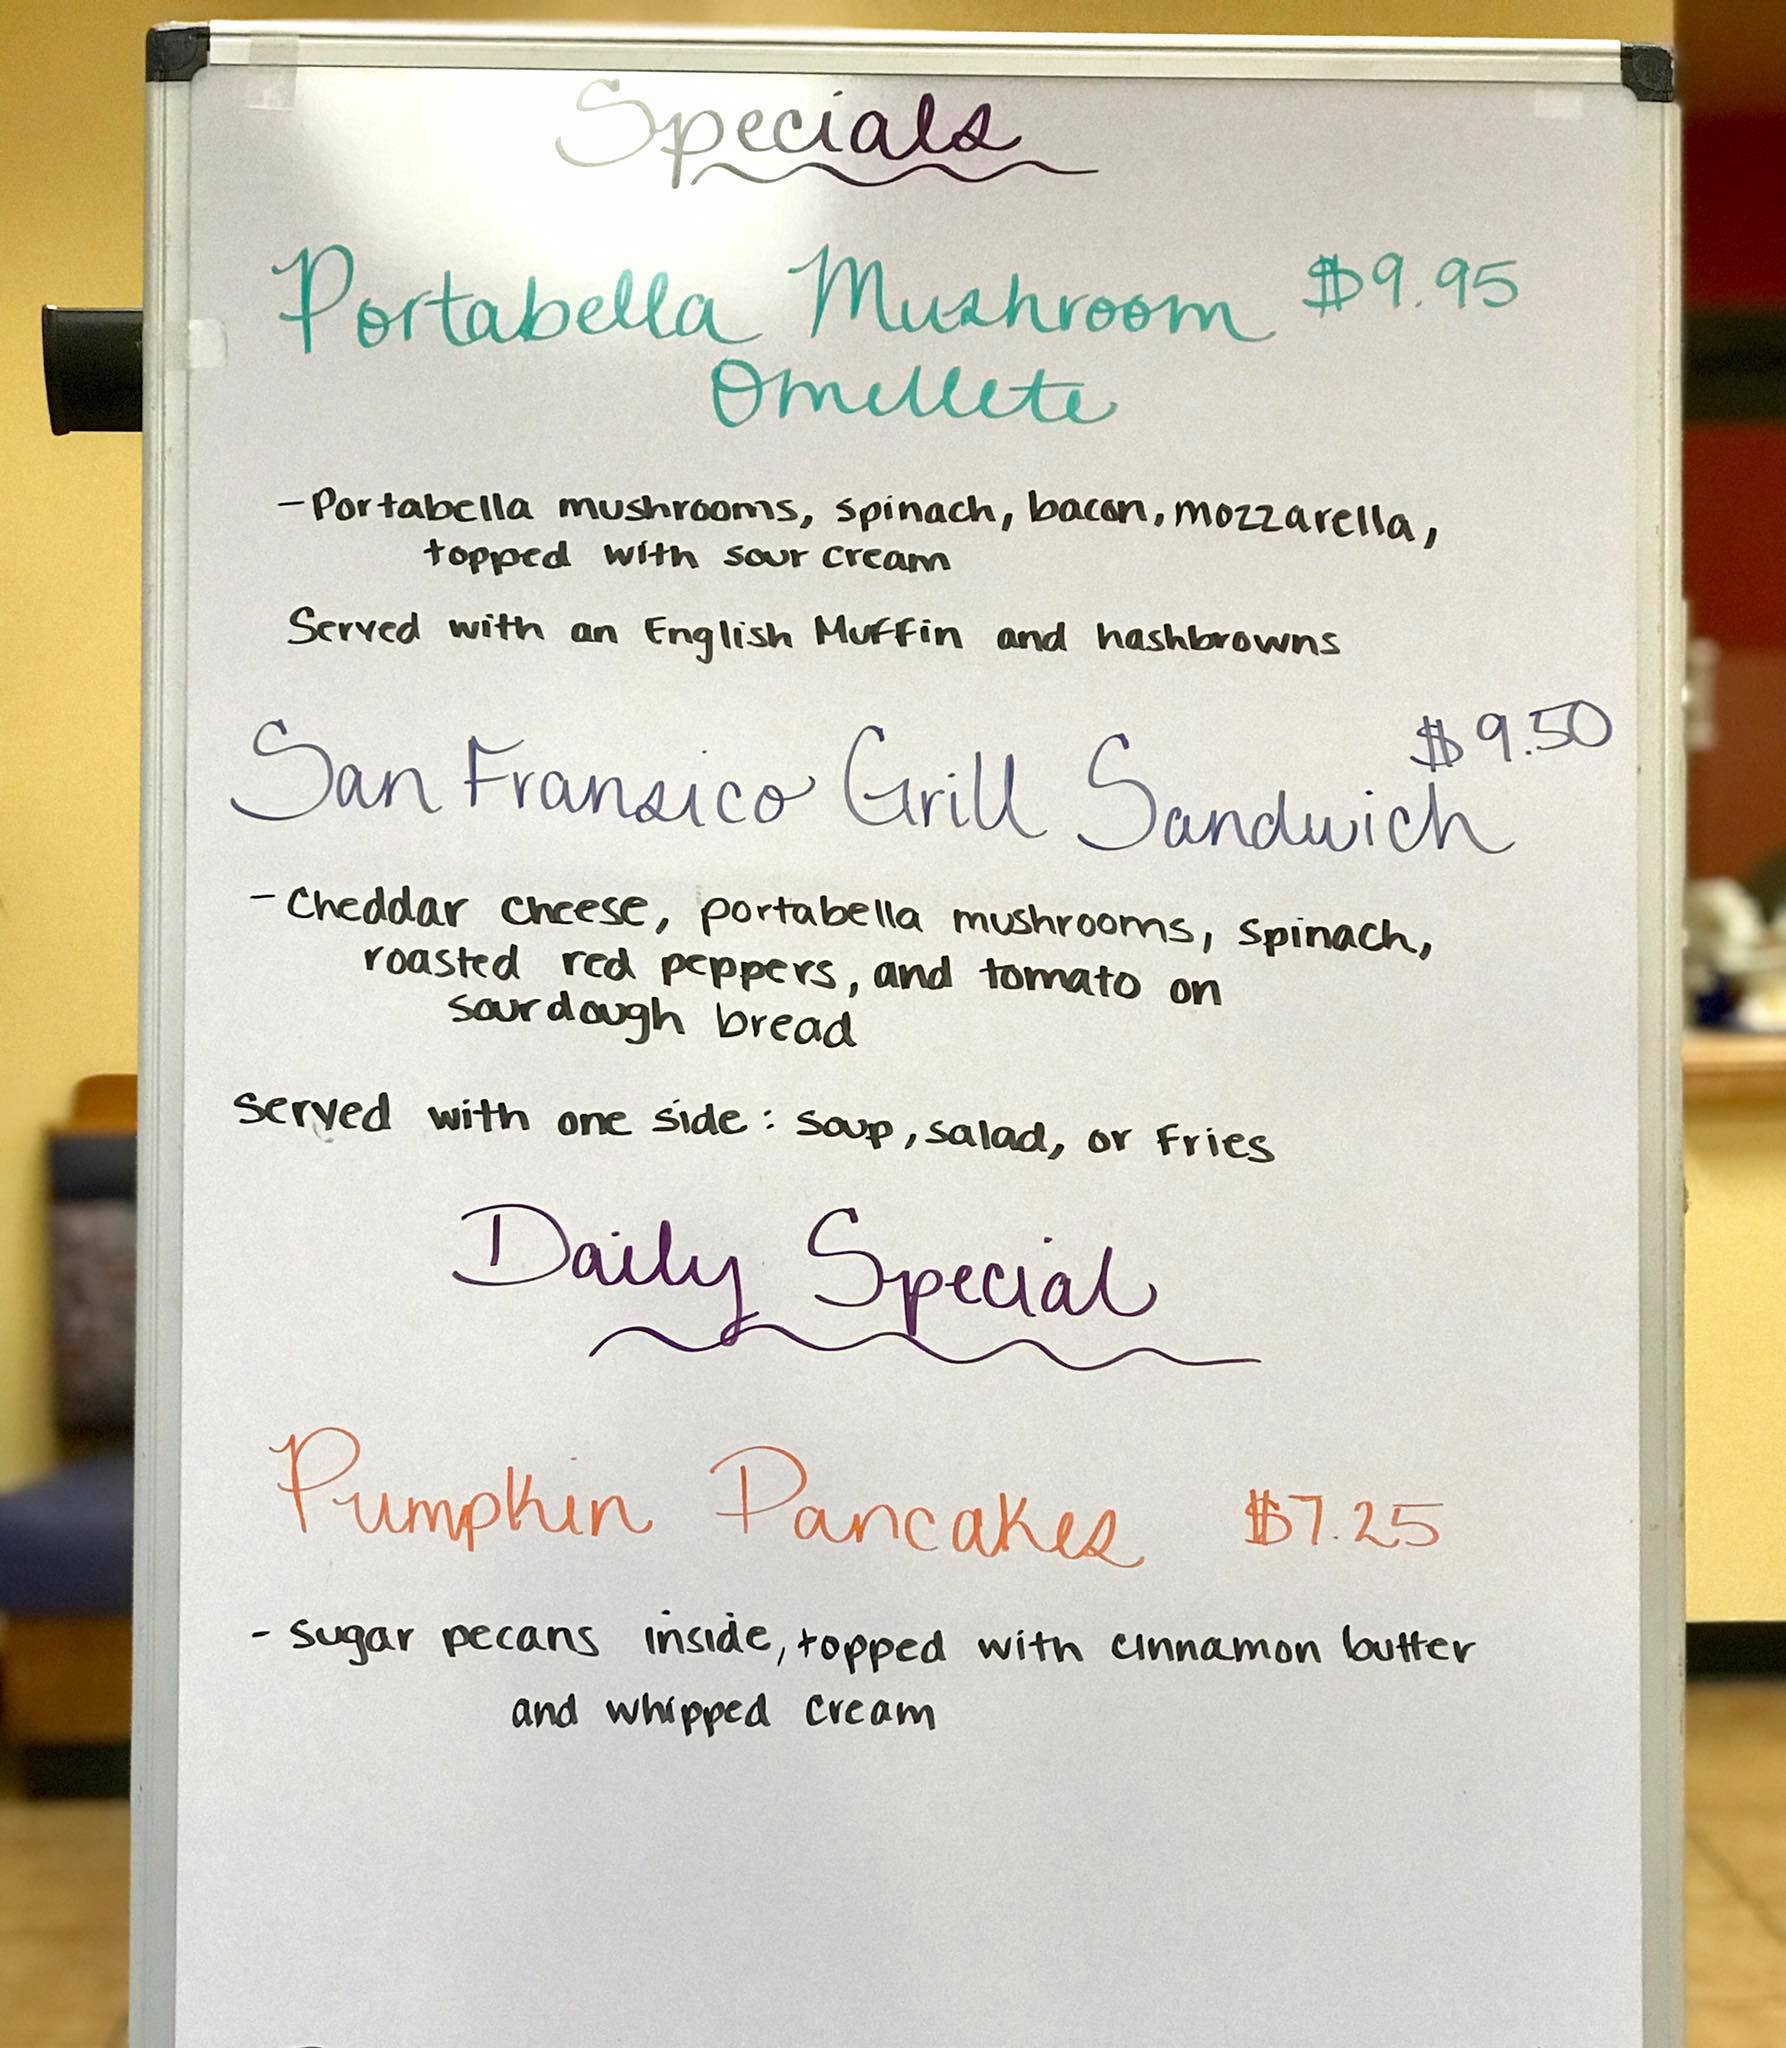 Specials
Portabella Mushroom $9.95
Omellete
-Portabella mushrooms, spinach, bacon, mozzarella,
topped with sour cream
Served with an English Muffin and hashbrowns
$9.50
San Fransico Grill Sandwich
- Cheddar cheese, portabella mushrooms, spinach,
roasted red peppers, and tomato on
sourdough bread
served with one side: soup, salad, or fries
Daily Special
Pumpkin Pancakes $7.25
- sugar pecans inside, topped with cinnamon butter
and whipped cream